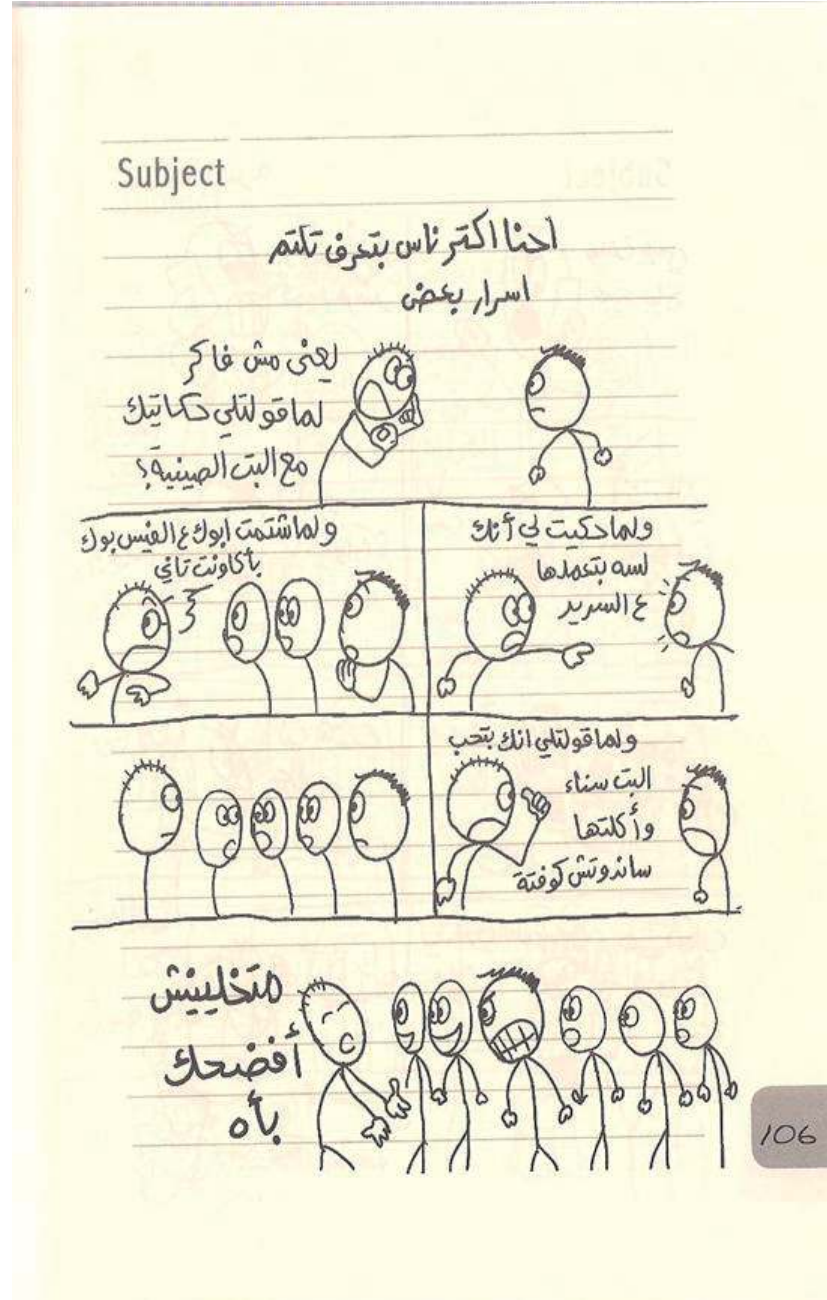 Subject
احنا اكتر ناس بتعرف تكتم
اسرار بعض
يعنى مش فاكر
لما قولتلي حكاتيك
مع البت الصينية؟
ولما حكيت لي أنك
لسه بتعملها
ع السرير
ولما شتمت ابوك ع الفيس بوك
بأكاونت تاني
ولما قولتلي انك بتحب
البت سناء
وأكلتها
ساندوتش كوفتة
متخلينيش
أفضحك
بأه
106